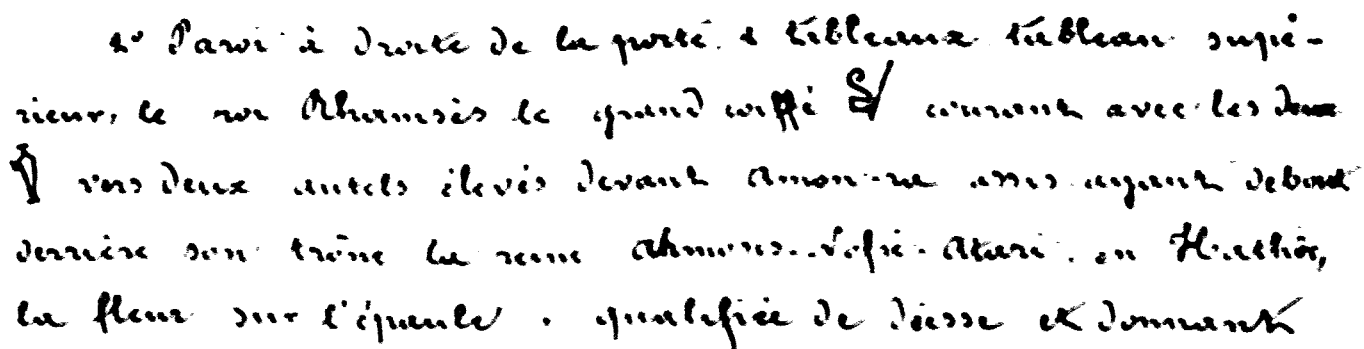 1° Paroi à droite de la porte. 2 tableaux tableau supé-
rieur, le roi Rhamsès le grand coiffé courant avec les deux
vers deux autels élevés devant Amon-ra assis ayant debout
derrière son trône la reine Ahmons-Nofré-Atari. en Hathôr,
la fleur sur l'épaule. qualifiée de déesse et donnant